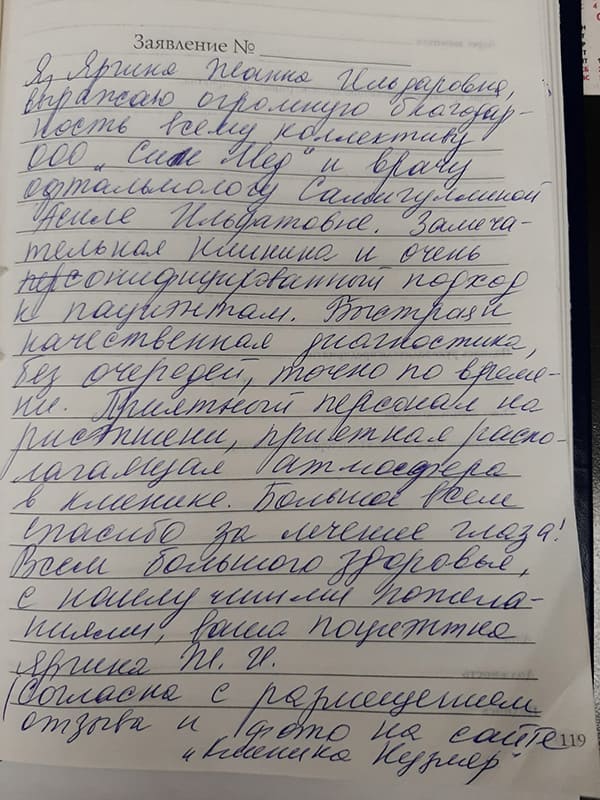 Заявление №
Я, Яргина Жанна Ильдаровна,
выражаю огромную благодар-
ность всему коллективу
ООО „Сим Мед" и врачу
офтальмологу Самигуллиной
Асиле Ильфатовне. Замеча-
тельная клиника и очень
персонифицированный подход
к пациентам. Быстрая и
качественная диагностика,
без очередей, точно по време-
ни. Приятный персонал на
рисепшени, приятная распо-
лагающая атмосфера
в клинике. Большое всем
спасибо за лечение глаза!
Всем большого здоровья,
с наилучшими пожела-
ниями, ваша пациентка
Яргина Ж. И.
(Согласна с размещением
отзыва и фото на сайте
„Клиника Кузляр"
119